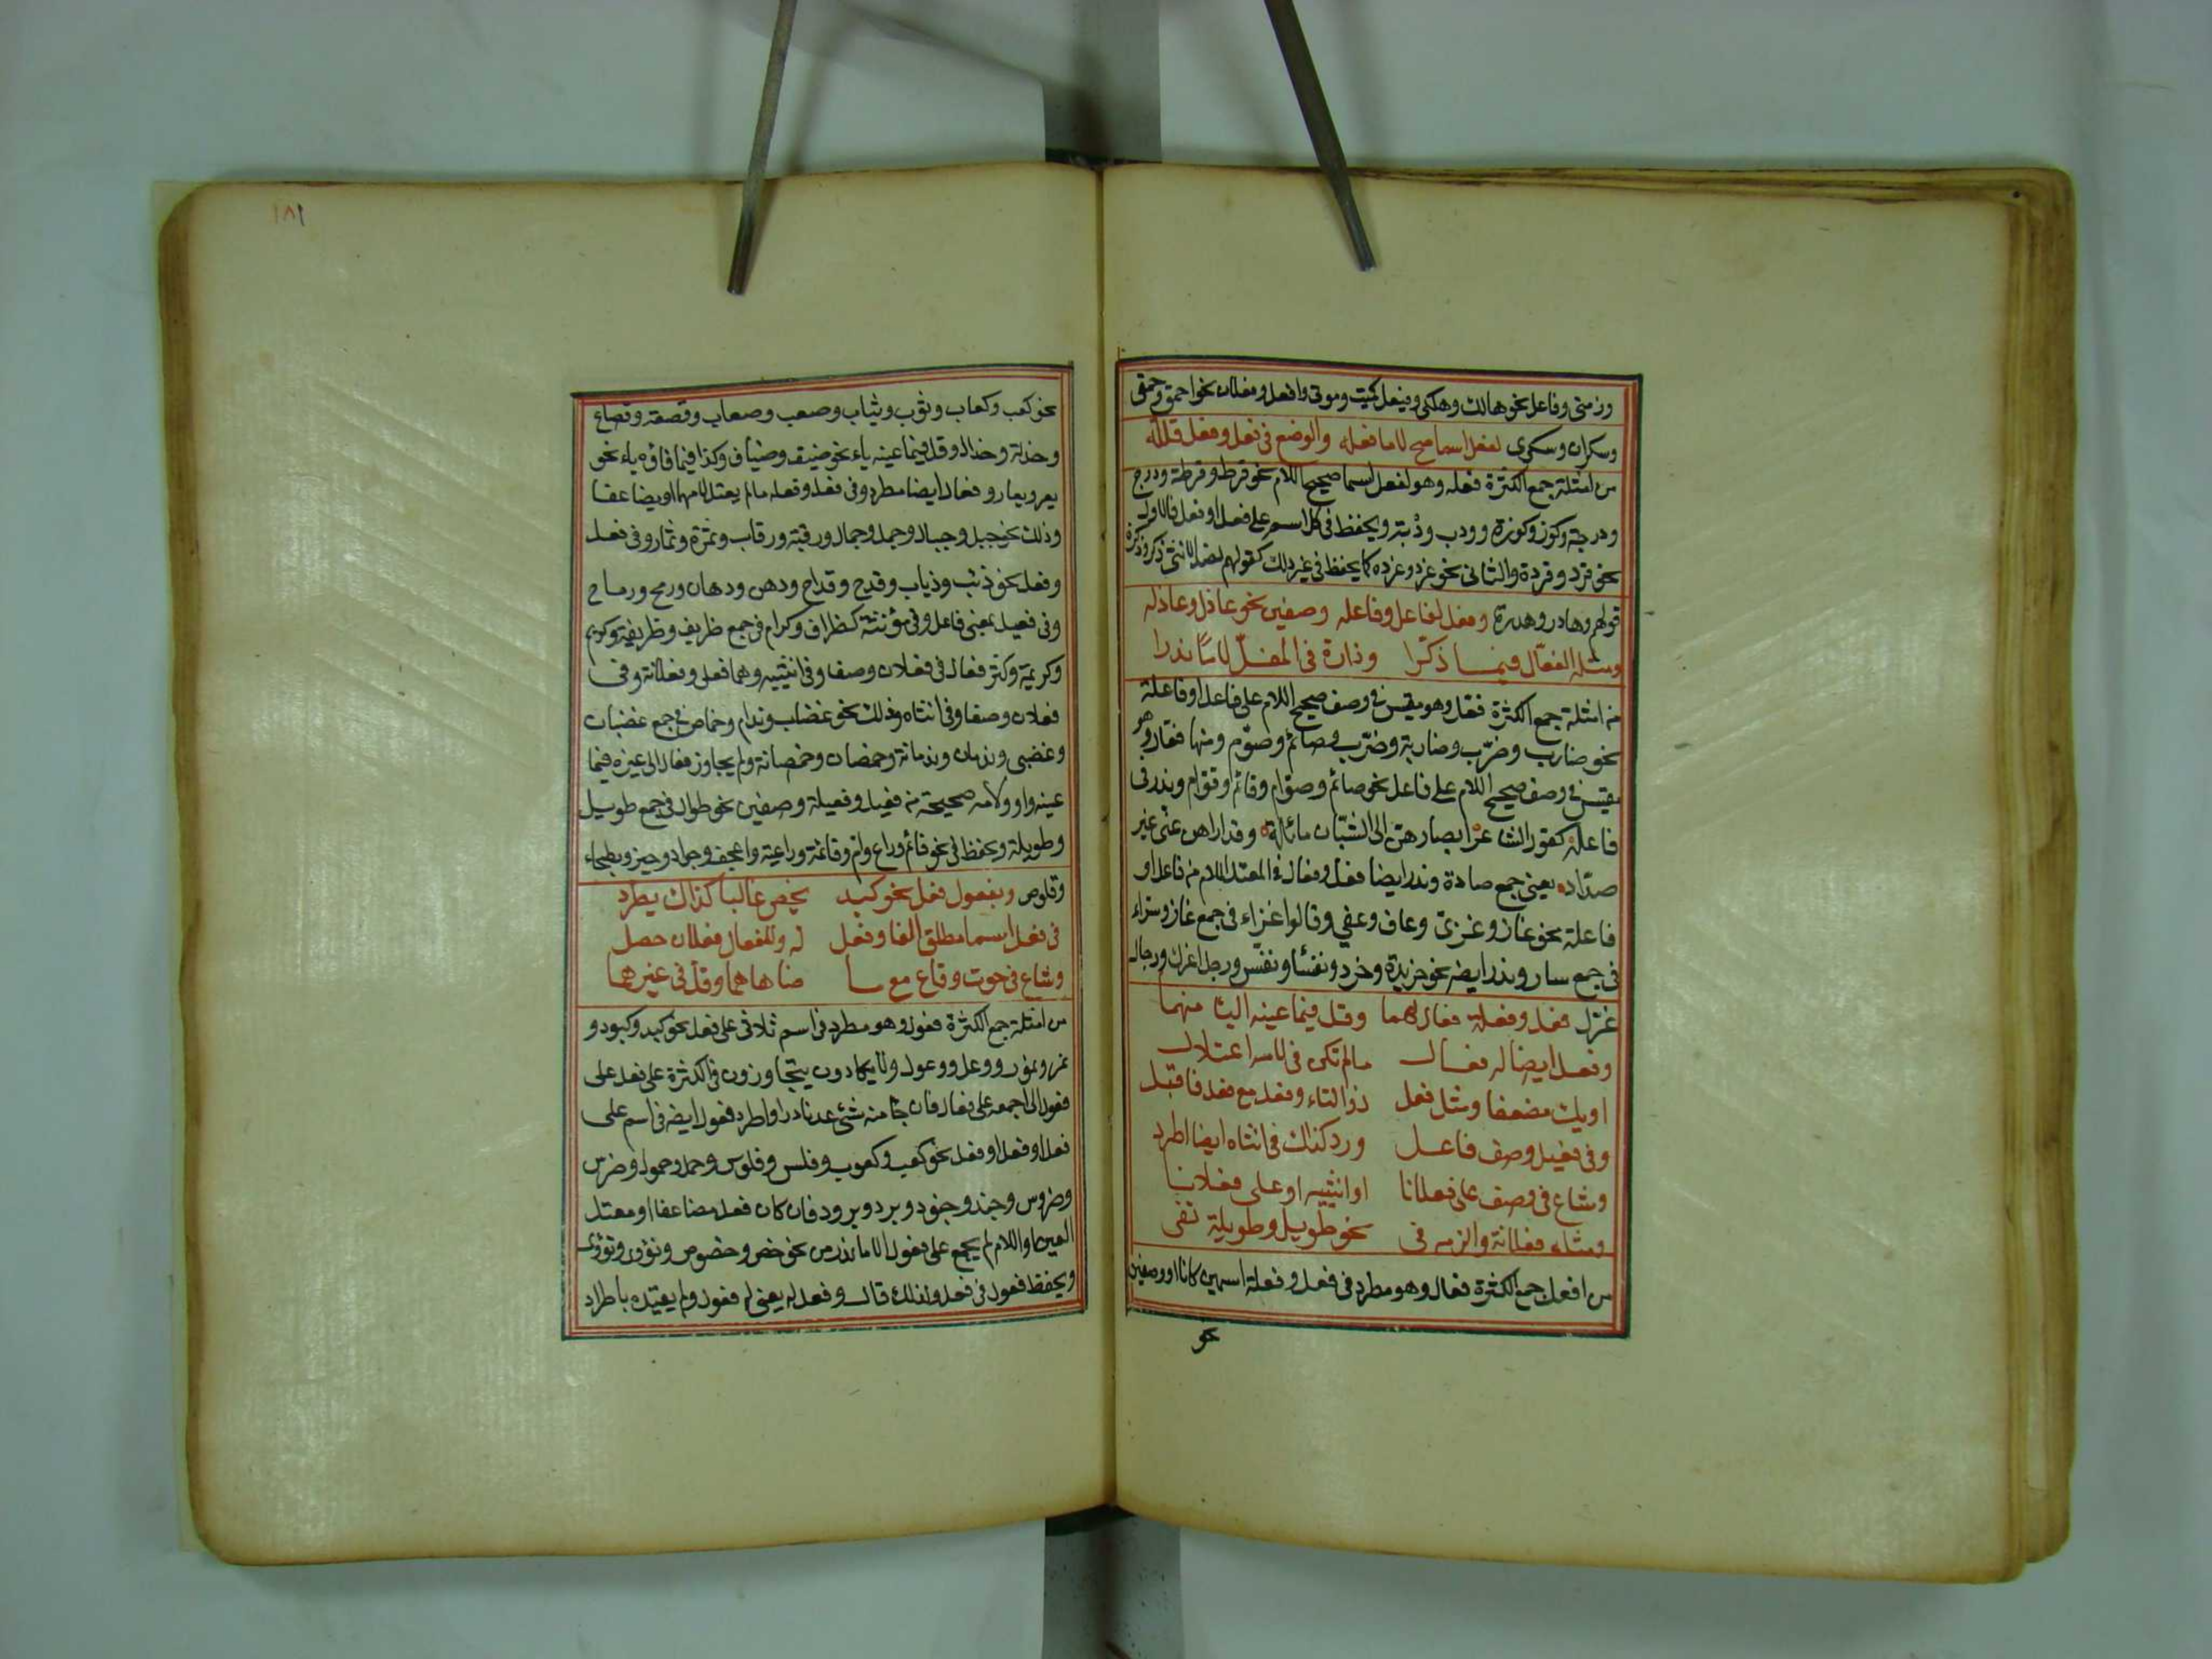 وزمنى وفاعل نحو هالك وهلكى وفيعل كميت وموتى وافعل وفعلان نحو احمق وحمقى
وسكران وسكرى لفعل اسما صح لاما فعله والوضع في فعل وفعل قلله
من امثلة جمع الكثرة فعله وهو لفعل اسما صحيح اللام نحو قرط وقرطة ودرج
ودرجة وكوز وكوزة ودب ودببة ويحفظ في كل اسم على فعل او فعل فالاول
نحو قرد وقردة والثاني نحو غرد وغردة كما يحفظ في غير ذلك كقولهم لضد الانثى ذكر وذكرة
قولهم وهادر وهدرة وفعل لفاعل وفاعله وصفين نحو عاذل وعاذله
ومثله الفعّال فيما ذكّرا وذان في المعلّ لاما ندرا
من امثلة جمع الكثرة فعّل وهو مقيس في وصف صحيح اللام على فاعل او فاعلة
نحو ضارب وضرّب وضاربة وضرّب وصائم وصوّم ومنها فعّال وهو
مقيس في وصف صحيح اللام على فاعل نحو صائم وصوّام وقائم وقوّام وندر في
فاعلة كقول الشاعر ابصارهن الى الشبّان مائلة وقد اراهن عنى غير
صدّاد يعنى جمع صادة وندر ايضا فعّل وفعّال في المعتل اللام من فاعل او
فاعلة نحو غاز وغزىّ وعاف وعفي وقالوا غزّاء في جمع غاز وسرّاء
في جمع سار وندر ايضه نحو خريدة وخرد ونفسا ونفّس ورجل اعزل ورجال
عزّل فعل وفعلة فعال لهما وقل فيما عينه اليا منهما
وفعل ايضا له فعال مالم تكن في لامه اعتلال
او يك مضعفا ومثل فعل ذو التاء وفعل مع فعل فاقبل
وفي فعيل وصف فاعل ورد كذاك في انثاه ايضا اطرد
وشاع في وصف على فعلانا او انثييه او على فعلانا
ومثله فعلانة والزمه في نحو طويل وطويلة تفى
من افعل جمع الكثرة فعال وهو مطرد في فعل وفعلة اسمين كانا او وصفين
نحو
١٨١
نحو كعب وكعاب وثوب وثياب وصعب وصعاب وقصعة وقصاع
وخدلة وخدال وقل فيما عينه ياء نحو ضيف وضياف وكذا فيما فاؤه ياء نحو
يعر ويعار وفعال ايضا مطرد وفى فعل وفعله مالم يعتل لامهما او يضاعفا
وذلك نحو جبل وجبال وجمل وجمال ورقبة ورقاب وثمرة وثمار وفى فعل
وفعل نحو ذئب وذياب وقدح وقداح ودهن ودهان ورمح ورماح
وفى فعيل بمعنى فاعل وفى مؤنثته كظراف وكرام في جمع ظريف وظريفة وكريم
وكريمة وكثر فعال في فعلان وصفا وفى انثييه وهما فعلى وفعلانة وفى
فعلان وصفا وفى انثاه وذلك نحو غضاب وندام وخماص في جمع غضبان
وغضبى وندمان وندمانة وخمصان وخمصانة ولم يجاوز فعال الى غيره فيما
عينه واو ولامه صحيحة من فعيل وفعيلة وصفين نحو طوال في جمع طويل
وطويلة ويحفظ في نحو قائم وراع وام وقائمة وراعية واعجف وجواد وخير وبطحاء
وقلوص وبفعول فعل نحو كبد يخص غالبا كذاك يطرد
في فعل اسما مطلق الفا وفعل له وللفعال فعلان حصل
وشاع في حوت وقاع مع ما ضاهاهما وقل في غيرهما
من امثلة جمع الكثرة فعول وهو مطرد في اسم ثلاثى على فعل نحو كبد وكبود و
نمر ونمور ووعل ووعول ولا يكادون يتجاوزون في الكثرة على فعل على
فعول الى جمعه على فعال فان جا منه شئ عد نادرا واطرد فعول ايضه في اسم على
فعل او فعل او فعل نحو كعب وكعوب وفلس وفلوس وحمل وحمول وضرس
وضروس وجند وجنود وبرد وبرود فان كان فعل مضاعفا او معتل
العين او اللام لم يجمع على فعول الا ما ندر من نحو خص وخصوص ونؤى ونؤى
ويحفظ فعول في فعل ولذلك قال وفعل له يعنى له فعول ولم يقيده باطراد